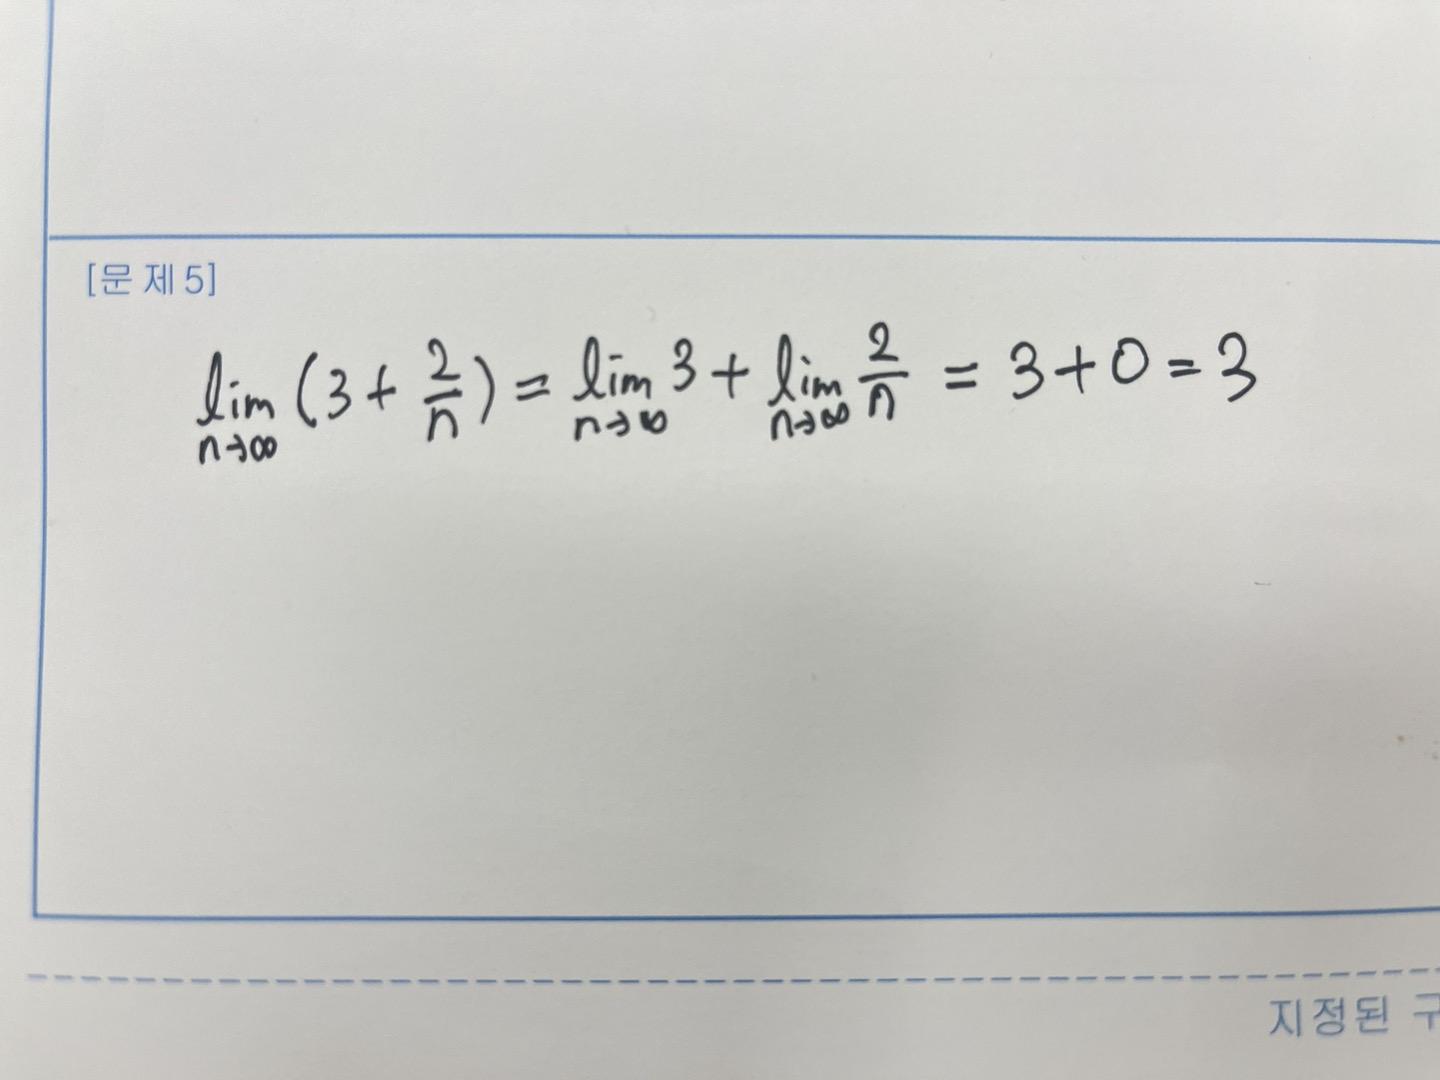 [문제5]
lim n→∞ (3 + 2/n) = lim n→∞ 3 + lim n→∞ 2/n = 3+0=3
지정된